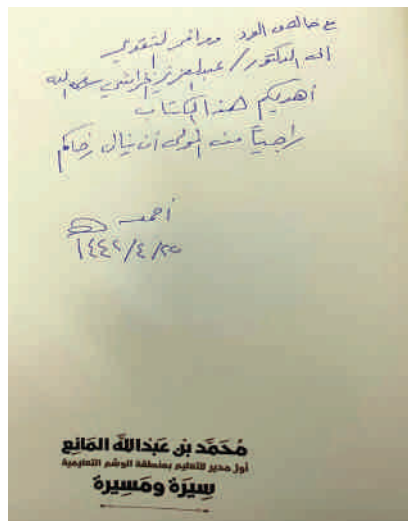 مع خالص الود ووافر التقدير
الى الدكتور/ عبدالعزيز الخراشي سلمه الله
أهديكم هذا الكتاب
راجياً من المولى أن ينال رضاكم
أحمد
١٤٤٢/٤/٢٥
مُحَمَّد بن عَبدالله المَانِع
أول مدير للتعليم بمنطقة الوشم التعليمية
سِيرَة ومَسِيرة